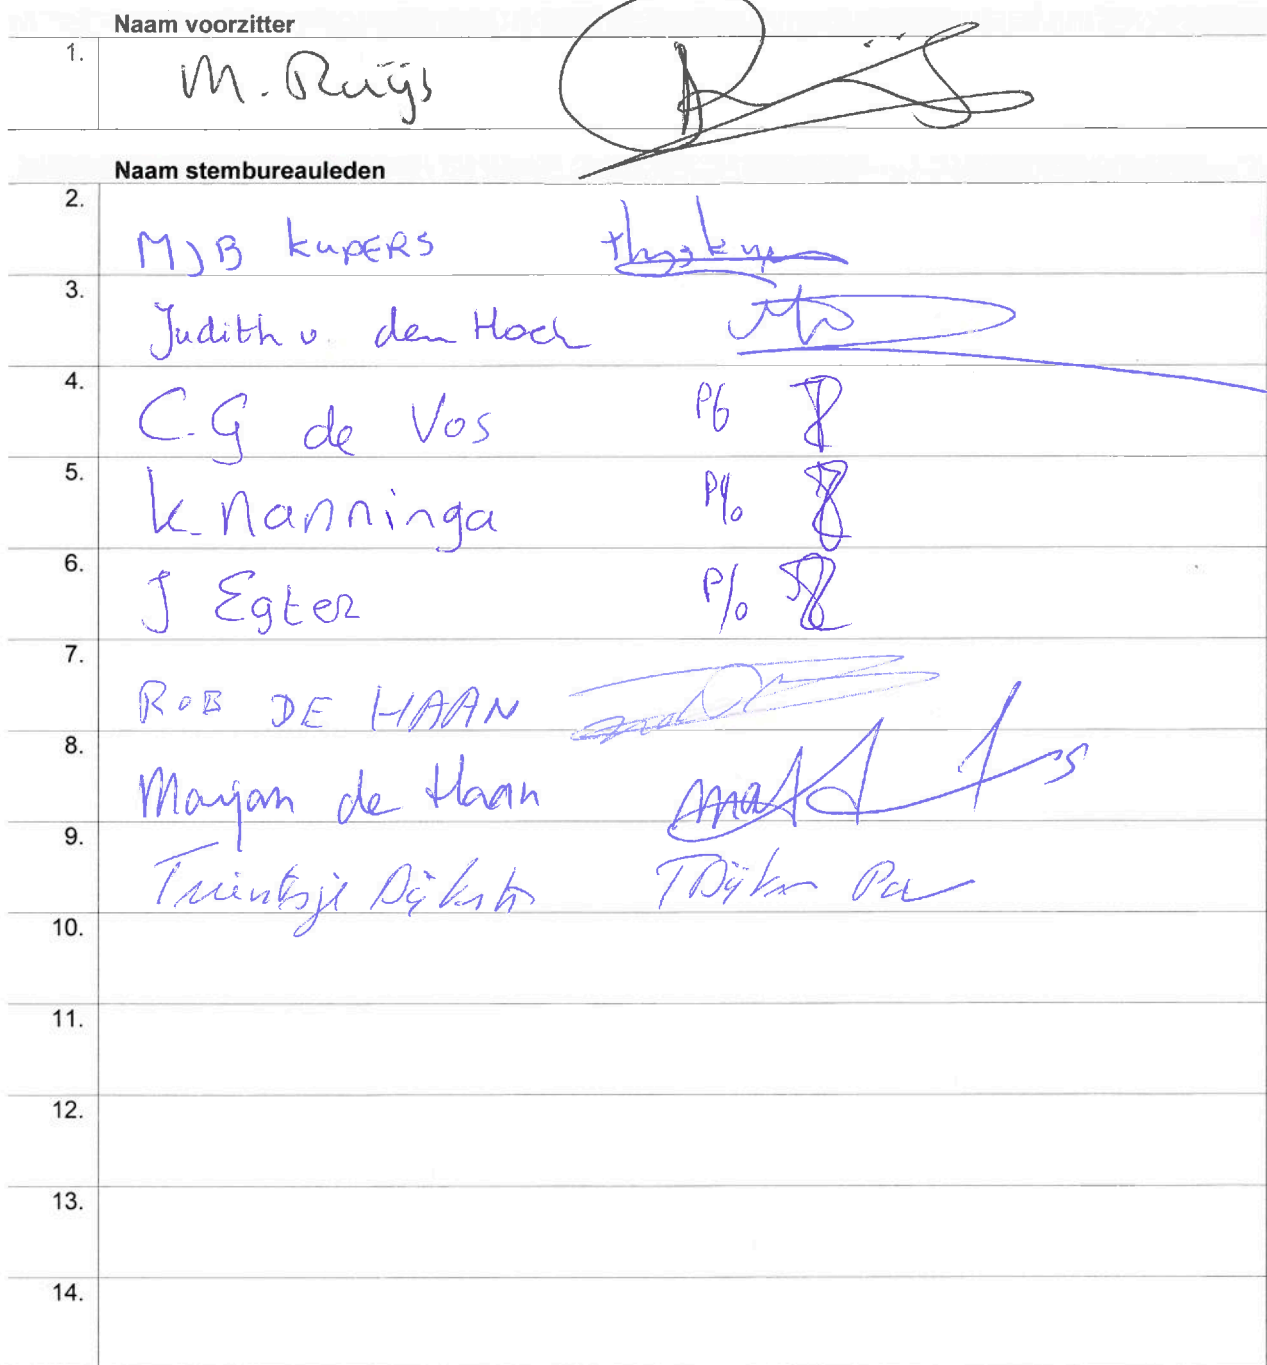 Naam voorzitter
1. M. Ruijs
Naam stembureauleden
2. MJB KUPERS
3. Judith v. den Hoek
4. C.G de Vos P/o
5. K. Nanninga P/o
6. J Egter P/o
7. ROB DE HAAN
8. Marjan de Haan
9. Trientsje Dijkstra
10.
11.
12.
13.
14.